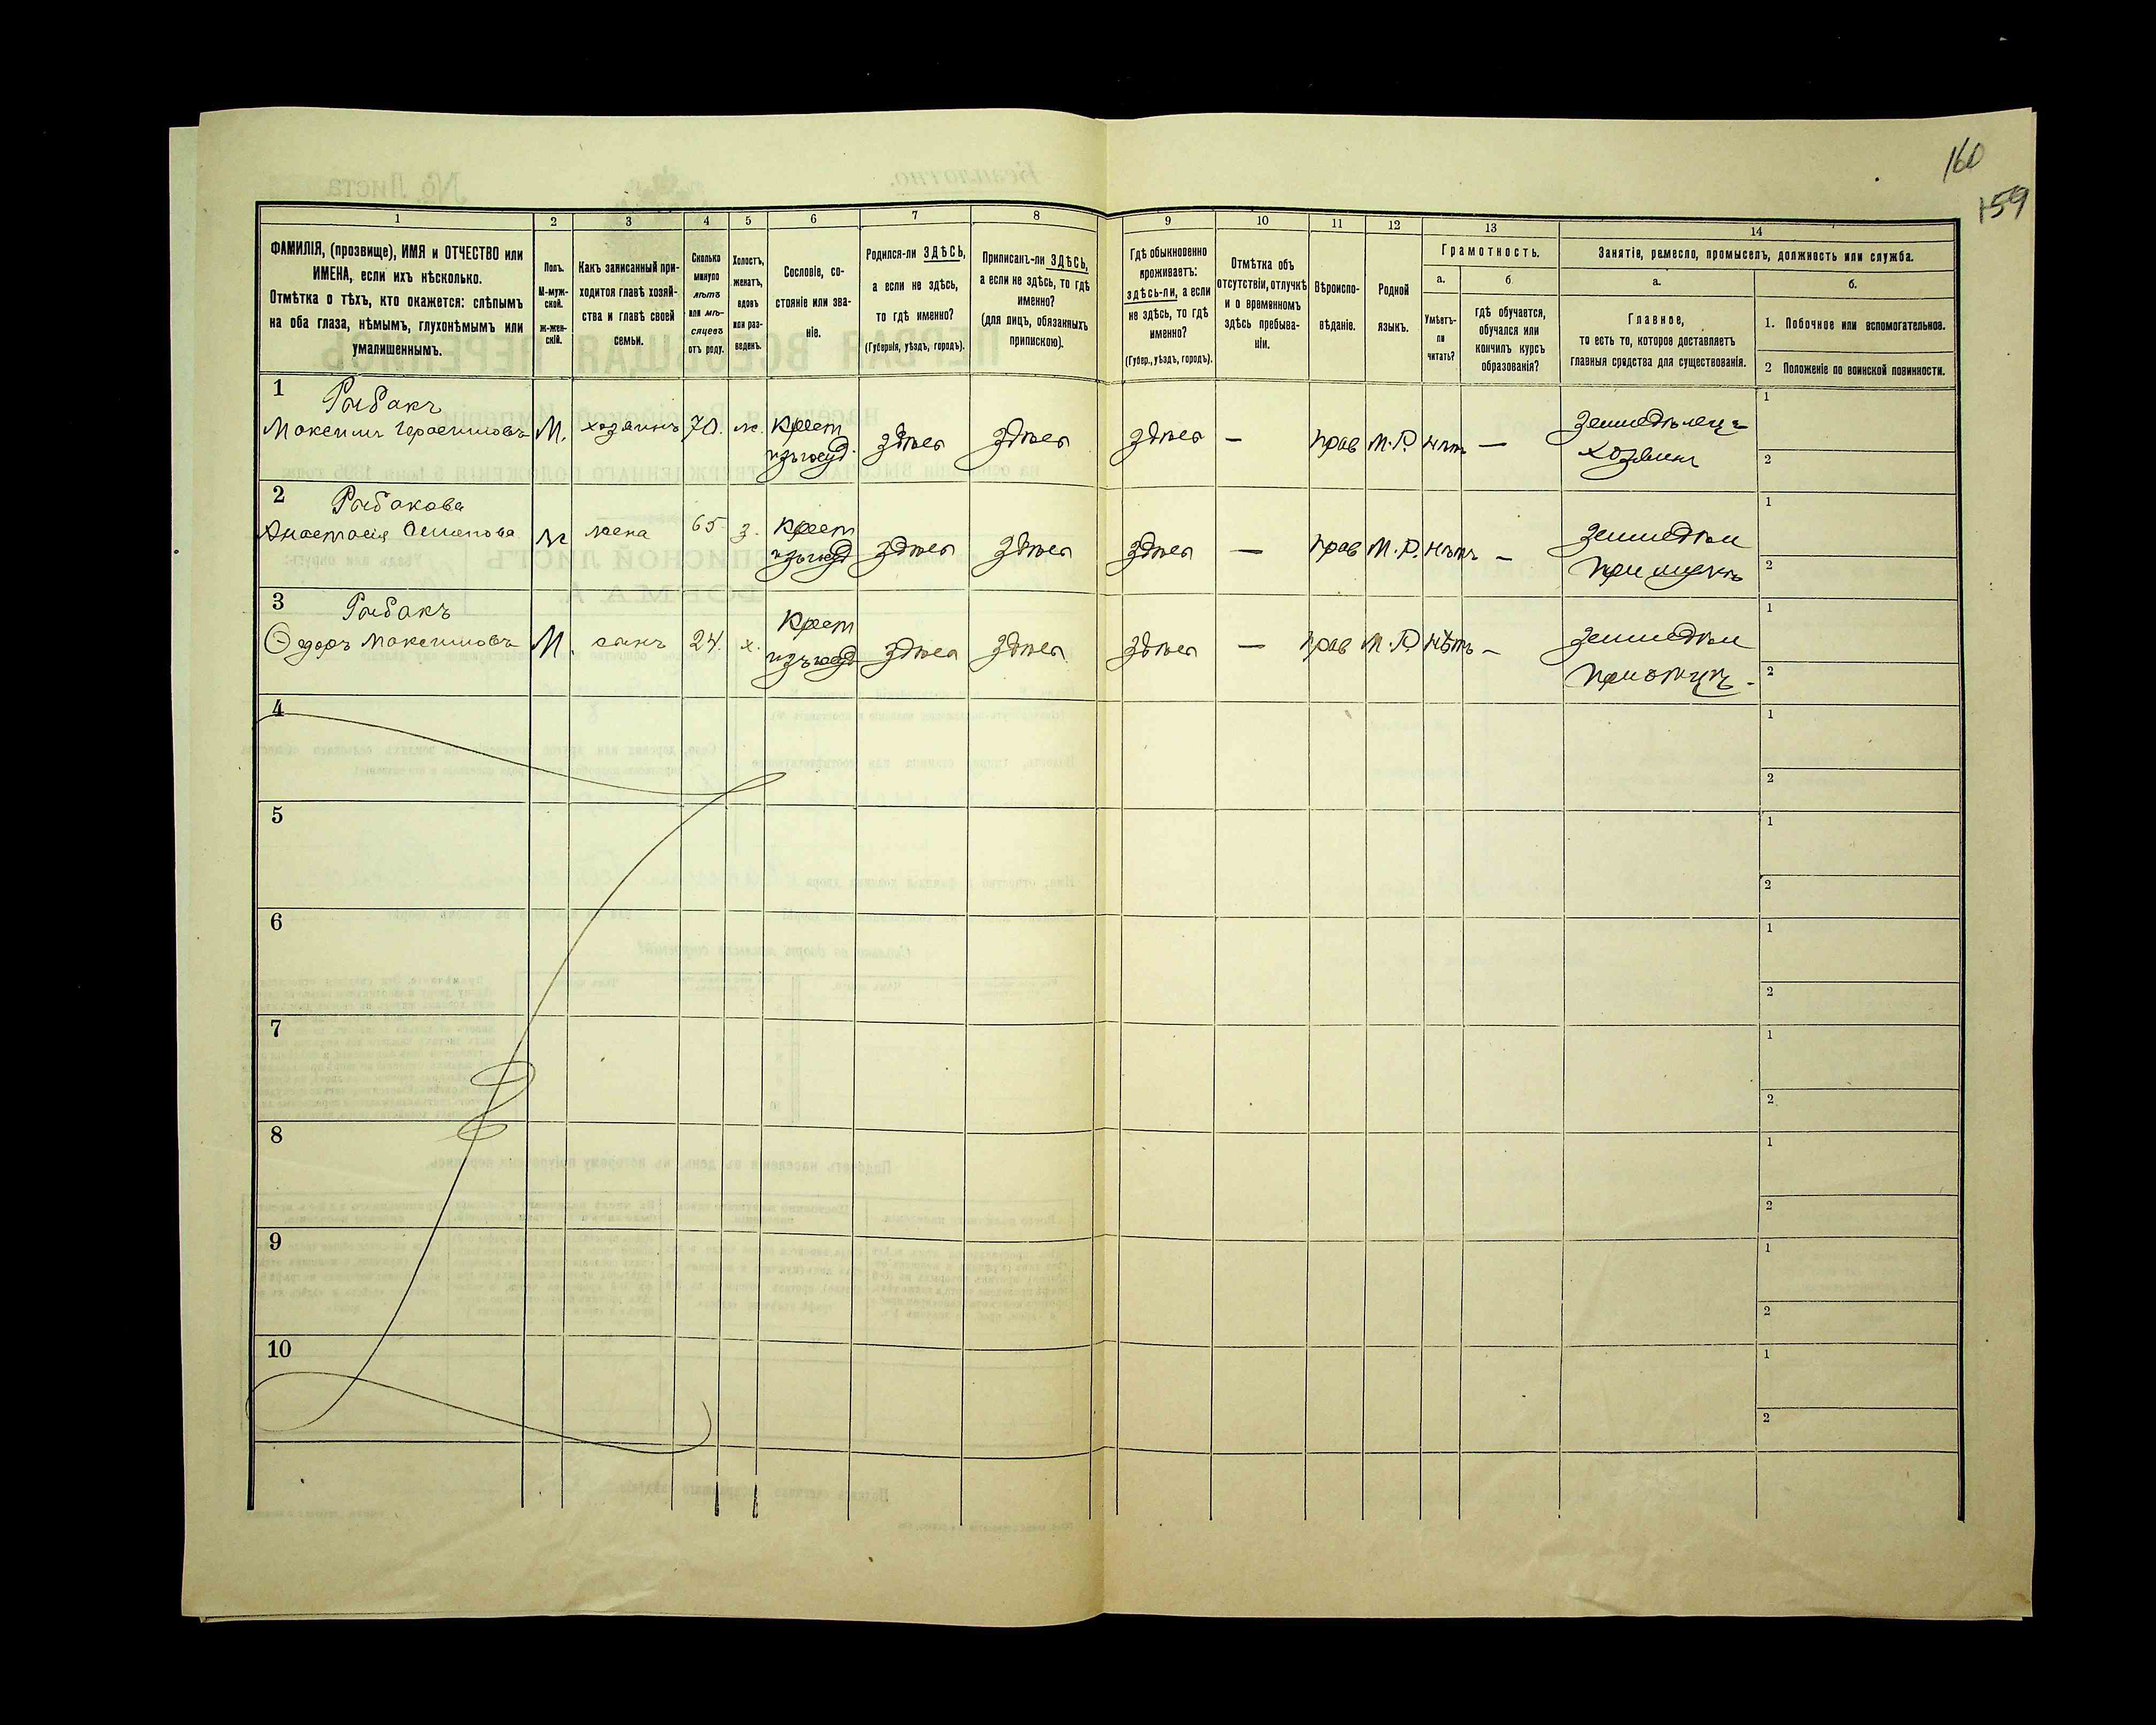 160
159
1
2
3
4
5
6
7
8
9
10
11
12
13
14
ФАМИЛІЯ, (прозвище), ИМЯ и ОТЧЕСТВО или
ИМЕНА, если ихъ нѣсколько.
Отмѣтка о тѣхъ, кто окажется: слѣпымъ
на оба глаза, нѣмымъ, глухонѣмымъ или
умалишеннымъ.
Полъ.
М-муж-
ской.
ж-жен-
скій.
Какъ записанный при-
ходится главѣ хозяй-
ства и главѣ своей
семьи.
Сколько
минуло
лѣтъ
или мѣ-
сяцевъ
отъ роду.
Холостъ,
женатъ,
вдовъ
или раз-
веденъ.
Сословіе, со-
стояніе или зва-
ніе.
Родился-ли ЗДѢСЬ,
а если не здѣсь,
то гдѣ именно?
(Губернія, уѣздъ, городъ).
Приписанъ-ли ЗДѢСЬ,
а если не здѣсь, то гдѣ
именно?
(для лицъ, обязанныхъ
припискою).
Гдѣ обыкновенно
проживаетъ:
здѣсь-ли, а если
не здѣсь, то гдѣ
именно?
(Губер., уѣздъ, городъ).
Отмѣтка объ
отсутствіи, отлучкѣ
и о временномъ
здѣсь пребыва-
ніи.
Вѣроиспо-
вѣданіе.
Родной
языкъ.
Грамотность.
а.
Умѣетъ-
ли
читать?
б.
гдѣ обучается,
обучался или
кончилъ курсъ
образованія?
Занятіе, ремесло, промыселъ, должность или служба.
а.
Главное,
то есть то, которое доставляетъ
главныя средства для существованія.
б.
1. Побочное или вспомогательное.
2 Положеніе по воинской повинности.
1
Рыбакъ
Максимъ Герасимовъ
М.
хозяинъ
70.
ж.
Крест
изъ госуд.
здѣсь
здѣсь
здѣсь
—
прав
М.Р.
нѣтъ
—
Земледѣлецъ
хозяинъ
1
2
2
Рыбакова
Анастасія
ж
жена
65
з.
Крест
изъ госуд
здѣсь
здѣсь
здѣсь
—
прав
М.Р.
нѣтъ
—
Земледѣл
при мужѣ
1
2
3
Рыбакъ
Ѳедоръ Максимовъ
М.
сынъ
24.
х.
Крест
изъ госуд
здѣсь
здѣсь
здѣсь
—
прав
М.Р.
нѣтъ
—
Земледѣл
при отцѣ
1
2
4
1
2
5
1
2
6
1
2
7
1
2
8
1
2
9
1
2
10
1
2